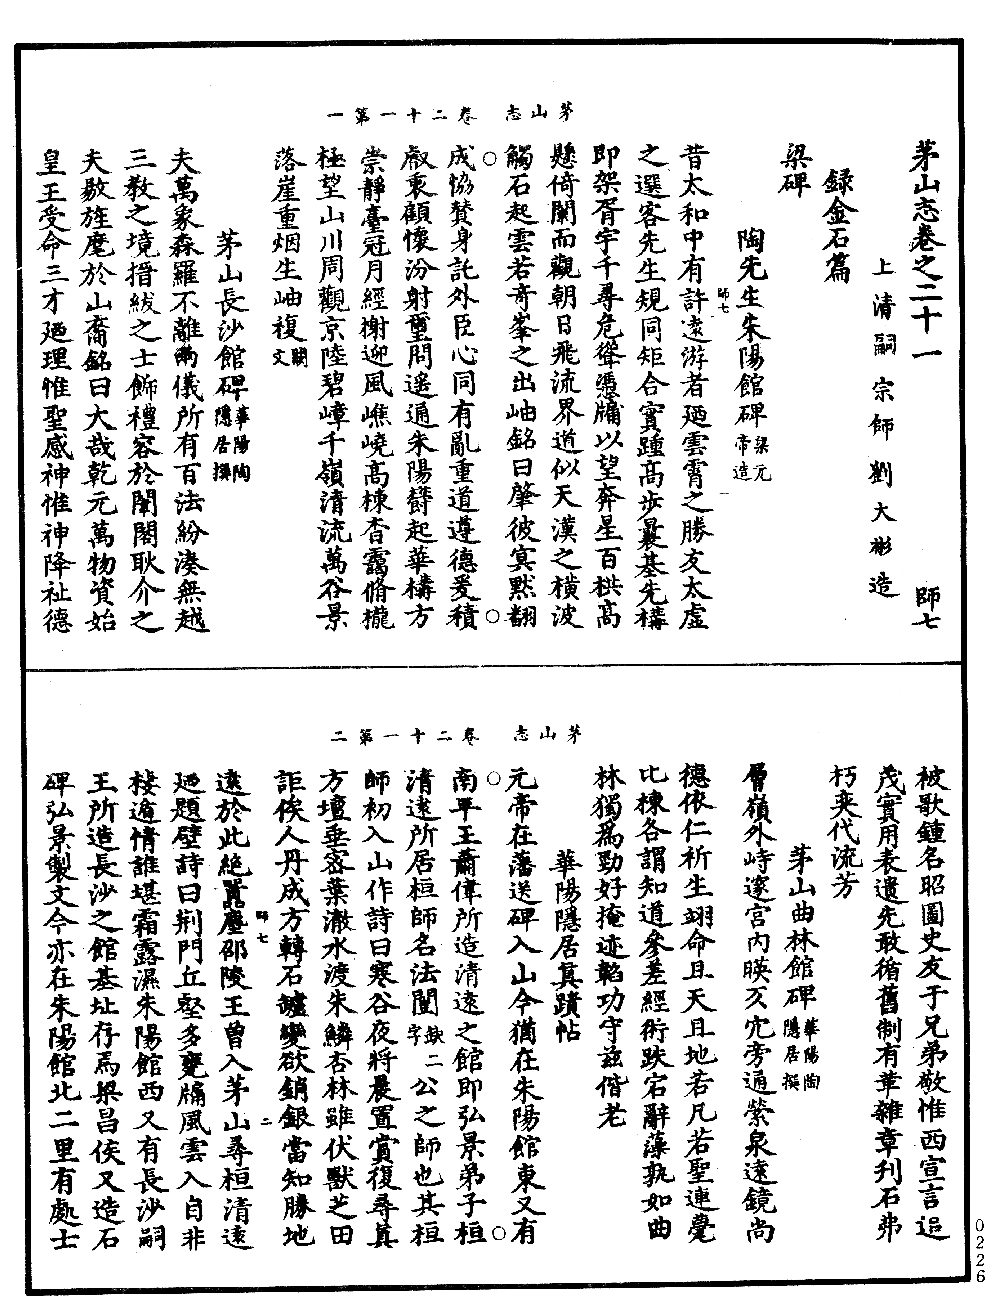 茅山志卷之二十一
師七
上清嗣宗師劉大彬造
録金石篇
梁碑
陶先生朱陽館碑梁元帝造
昔太和中有許遠游者廼雲霄之勝友太虚
之選客先生規同矩合實踵高步曩基先構
即架胥宇千尋危聳憑牖以望奔星百栱高
懸倚闌而觀朝日飛流界道似天漢之橫波
觸石起雲若奇峯之出岫銘曰肇彼寘黙翻
成協贊身託外臣心同有亂重道遵德爰積
叡衷顧懷汾射璽問遥通朱陽欝起華構方
崇靜臺冠月經榭迎風嶕嶢高棟杳靄脩櫳
極望山川周觀京陸碧嶂千嶺清流萬谷景
落崖重烟生岫複闕文
茅山長沙館碑華陽陶隱居撰
夫萬象森羅不離兩儀所有百法紛湊無越
三教之境搢紱之士飾禮容於闈閤耿介之
夫敭旌麾於山裔銘曰大哉乾元萬物資始
皇王受命三才廼理惟聖感神惟神降祉德
茅山志 卷二十一第一
師七 一
被歌鍾名昭圖史友于兄弟敬惟西宣言追
茂實用表遺先敢循舊制有革雜章刋石弗
朽奕代流芳
茅山曲林館碑華陽陶隱居撰
層嶺外峙邃宫内映仄穴旁通縈泉遠鏡尚
德依仁祈生翊命且天且地若凡若聖連甍
比棟各謂知道參差經術跌宕辭藻孰如曲
林獨爲勁好掩迹韜功守兹偕老
華陽隱居真蹟帖
元帝在藩送碑入山今猶在朱陽館東又有
南平王蕭偉所造清遠之館即弘景弟子桓
清遠所居桓師名法闓缺二字公之師也其桓
師初入山作詩曰寒谷夜將晨置賞復尋真
方壇垂密葉澈水渡朱鱗杏林雖伏獸芝田
詎俟人丹成方轉石罏變欲銷銀當知勝地
遠於此絶囂塵邵陵王曾入茅山尋桓清遠
廼題壁詩曰荆門丘壑多甕牖風雲入自非
棲遁情誰堪霜露濕朱陽館西又有長沙嗣
王所造長沙之館基址存焉梁昌侯又造石
碑弘景製文今亦在朱陽館北二里有處士
茅山志 卷二十一第二
師七 二
0226